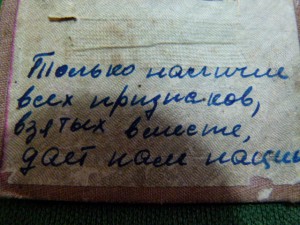 Только наличие
всех признаков,
взятых вместе,
даёт нам нацию